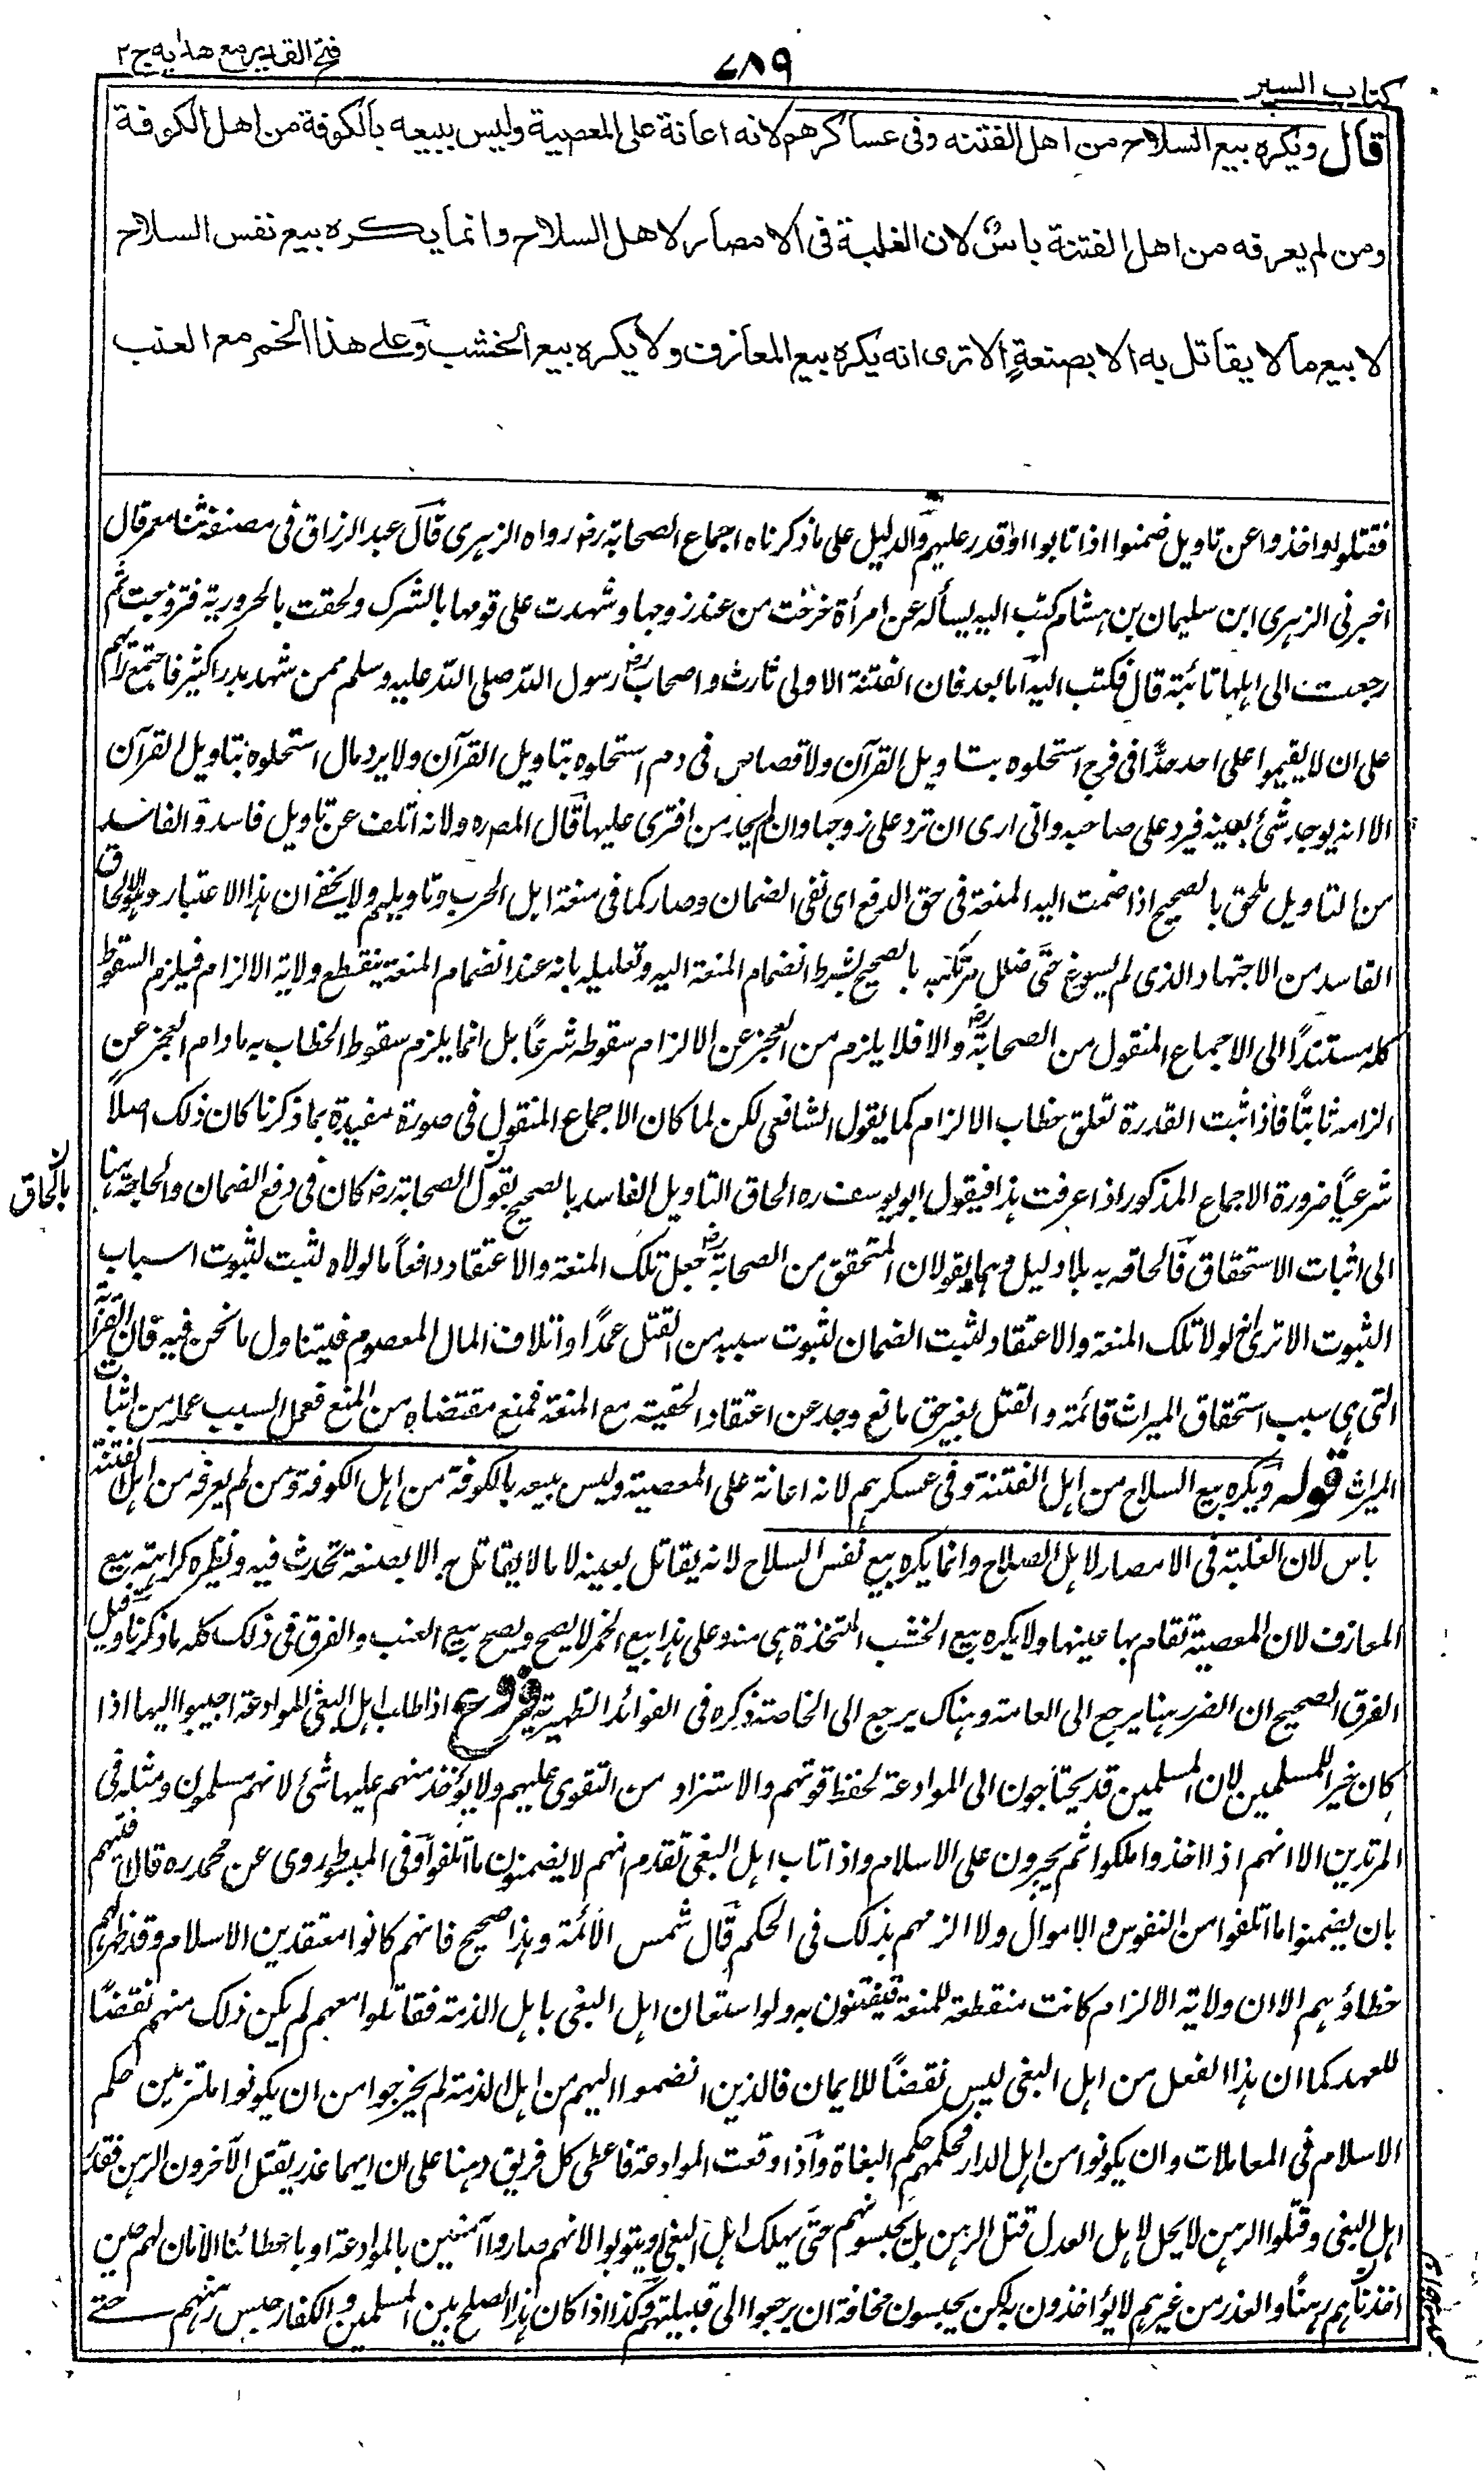 كتاب السير
٧٨٩
فتح القدير مع هدايه ج ٢
قال ويكره بيع السلاح من اهل الفتنه وفى عساكرهم لانه اعانة على المعصية وليس ببيعه بالكوفة من اهل الكوفة
ومن لم يعرفه من اهل الفتنة باس لان الغلبة فى الامصار لاهل السلاح وانما يكره بيع نفس السلاح
لا بيع ما لا يقاتل به الا بصنعةٍ الا ترى انه يكره بيع المعازف ولا يكره بيع الخشب وعلى هذا الخمر مع العنب
فقتلوا واخذوا عن تاويل ضمنوا اذا تابوا او قدر عليهم والدليل على ما ذكرناه اجماع الصحابة رض رواه الزهرى قال عبد الرزاق فى مصنفه ثنا معمر قال
اخبرنى الزهرى ابن سليمان بن هشام كتب اليه يسأله عن امرأة خرجت من عند زوجها وشهدت على قومها بالشرك ولحقت بالحرورية فتزوجت ثم
رجعت الى اهلها تائبة قال فكتب اليه اما بعد فان الفتنة الاولى ثارت واصحاب رض رسول الله صلى الله عليه وسلم ممن شهد بدرا كثير فاجتمع رأيهم
على ان لا يقيموا على احد حدًّا فى فرج استحلوه بتاويل القرآن ولا قصاص فى دم استحلوه بتاويل القرآن ولا يرد مال استحلوه بتاويل القرآن
الا انه يوجد شئ بعينه فيرد على صاحبه وانى ارى ان ترد على زوجها وان يحد من افترى عليها قال المص ره ولانه اتلف عن تاويل فاسد والفاسد
من التاويل ملحق بالصحيح اذا ضمت اليه المنعة فى حق الدفع اى نفى الضمان وصار كما فى منعة اهل الحرب وتاويلهم ولا يخفى ان هذا الاعتبار وهو الحاق
الفاسد من الاجتهاد الذى لم يسوغ حتى ضلل مرتكبه بالصحيح بشرط انضمام المنعة اليه وتعليله بانه عند انضمام المنعة ينقطع ولاية الالزام فيلزم السقوط
كله مستندًا الى الاجماع المنقول من الصحابة رض والا فلا يلزم من العجز عن الالزام سقوطه شرعًا بل انما يلزم سقوط الخطاب به ما دام العجز عن
الزامه ثابتًا فاذا ثبت القدرة تعلق خطاب الالزام كما يقول الشافعى لكن لما كان الاجماع المنقول فى صورة مفيدة بما ذكرنا كان ذلك اصلاً
شرعيًا ضرورة الاجماع المذكور اذا عرفت هذا فيقول ابو يوسف ره الحاق التاويل الفاسد بالصحيح بقول الصحابة رض كان فى دفع الضمان والحاجة هنا
بالحاق
الى اثبات الاستحقاق فالحاقه به بلا دليل وهما يقولان المتحقق من الصحابة رض جعل تلك المنعة والاعتقاد دافعاً ما لولاه لثبت لثبوت اسباب
الثبوت الا ترى انه لولا تلك المنعة والاعتقاد لثبت الضمان لثبوت سببه من القتل عمدًا واتلاف المال المعصوم فيتناول ما نحن فيه فان القرابة
التى هى سبب استحقاق الميراث قائمة والقتل بغير حق مانع وجد عن اعتقاد الحقية مع المنعة فمنع مقتضاه من المنع فعمل السبب عمله من اثبات
الميراث قوله ويكره بيع السلاح من اهل الفتنة وفى عسكرهم لانه اعانة على المعصية وليس بيعه بالكوفة من اهل الكوفة ومن لم يعرفه من اهل الفتنة
باس لان الغلبة فى الامصار لاهل الصلاح وانما يكره بيع نفس السلاح لانه يقاتل بعينه لا ما لا يقاتل به الا بصنعة تحدث فيه ونظيره كراهة بيع
المعازف لان المعصية تقام بها عينها ولا يكره بيع الخشب المتخذة هى منه وعلى هذا بيع الخمر لا يصح ويصح بيع العنب والفرق فى ذلك كله ما ذكرنا وقيل
الفرق الصحيح ان الضرر هنا يرجع الى العامة وهناك يرجع الى الخاصة ذكره فى الفوائد الظهيرية فروع اذا طلب اهل البغى الموادعة اجيبوا اليها اذا
كان خيرا للمسلمين لان المسلمين قد يحتاجون الى الموادعة لحفظ قوتهم والاستزاد من التقوى عليهم ولا يؤخذ منهم عليها شئ لانهم مسلمون ومثله فى
المرتدين الا انهم اذا اخذوا ملكوا ثم يجبرون على الاسلام واذا تاب اهل البغى تقدم انهم لا يضمنون ما اتلفوا وفى المبسوط روى عن محمد ره قال افتيهم
بان يضمنوا ما اتلفوا من النفوس والاموال ولا الزمهم بذلك فى الحكم قال شمس الائمة وهذا صحيح فانهم كانوا معتقدين الاسلام وقد ظهر لهم
خطاؤهم الا ان ولاية الالزام كانت منقطعة للمنعة فيفتون به ولو استعان اهل البغى باهل الذمة فقاتلوا معهم لم يكن ذلك منهم نقضًا
للعهد كما ان هذا الفعل من اهل البغى ليس نقضًا للايمان فالذين انضموا اليهم من اهل الذمة لم يخرجوا من ان يكونوا ملتزمين حكم
الاسلام فى المعاملات وان يكونوا من اهل الدار فحكمهم حكم البغاة واذا وقعت الموادعة فاعطى كل فريق رهنا على ان ايهما غدر يقتل الآخرون الرهن فغدر
اهل البغى وقتلوا الرهن لا يحل لاهل العدل قتل الرهن بل يحبسونهم حتى يهلك اهل البغى او يتوبوا لانهم صاروا آمنين بالموادعة او باعطائنا الامان لهم حين
اخذناهم رهنًا والغدر من غيرهم لا يؤاخذون به لكن يحبسون مخافة ان يرجعوا الى قبيلتهم وكذا اذا كان هذا الصلح بين المسلمين والكفار حبس رهنهم حتى